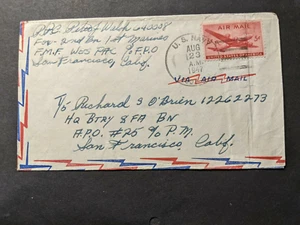 Fox 2nd Bn 1st Marines
F.M.F. Wes Pac % F.P.O
San Francisco, Calif.
AIR MAIL
U.S. NAVY
AUG
23
A.M.
1947
VIA AIR MAIL
To Richard S O'Brien 12262273
Hq Btry 8 FA BN
A.P.O. #25 % P.M.
San Francisco, Calif.